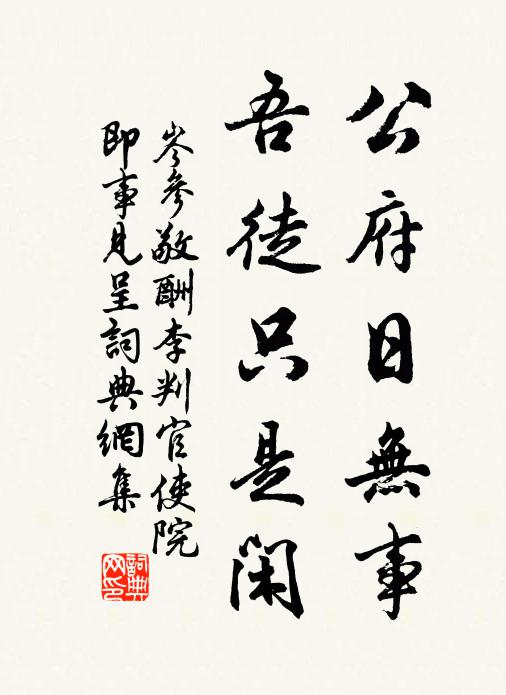 公府日無事
吾徒只是閑
岑參敬酬李判官使院
即事見呈詞典網集
詞典网印